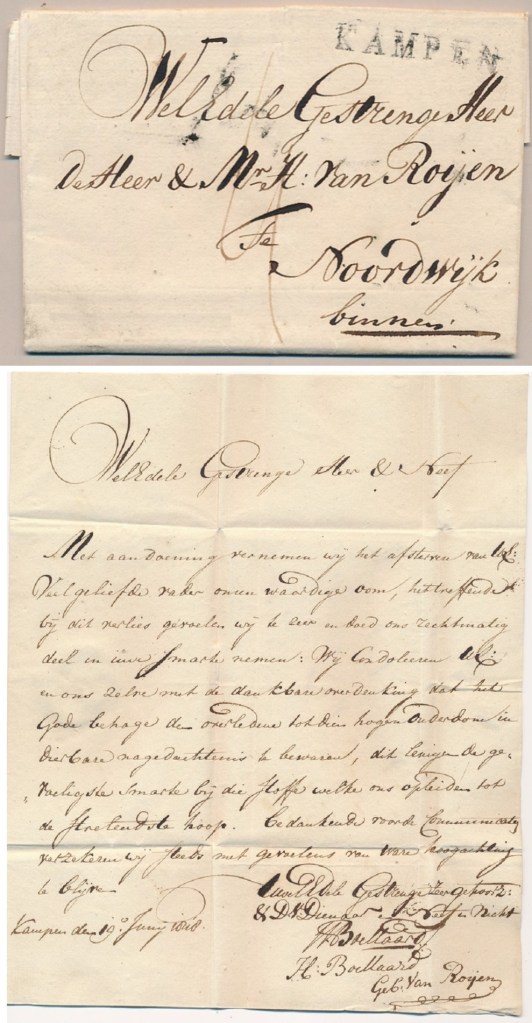 KAMPEN
WelEdele Gestrenge Heer
De Heer & Mr. H: van Roijen
Te Noordwijk
binnen
WelEdele Gestrenge Heer & Neef
Met aandoening vernemen wij het afsterven van UE:
Veel geliefde vader onsen waardige oom, het treffende
bij dit verlies gevoelen wij te zeer en doed ons rechtmatig
deel in uwe smarte nemen: Wij Condoleeren UE:
en ons zelve met de dankbare overdenking dat het
Gode behage de overledene tot dien hogen ouderdom in
dierbare nagedachtenis te bewaren, dit lenige de ge-
voeligste smarte bij die stoffe welke ons opleiden tot
de streelendste hoop. Bedankende voor de Communicatie
verzekeren wij steeds met gevoelens van ware hoogachting
te blijven
UwelEdele Gestrenge zeer gehoorz:
& DW Dienaar Neef en Nicht
Kampen den 19e Juny 1818.
Boellaard
H: Boellaard
Geb: Van Roijen